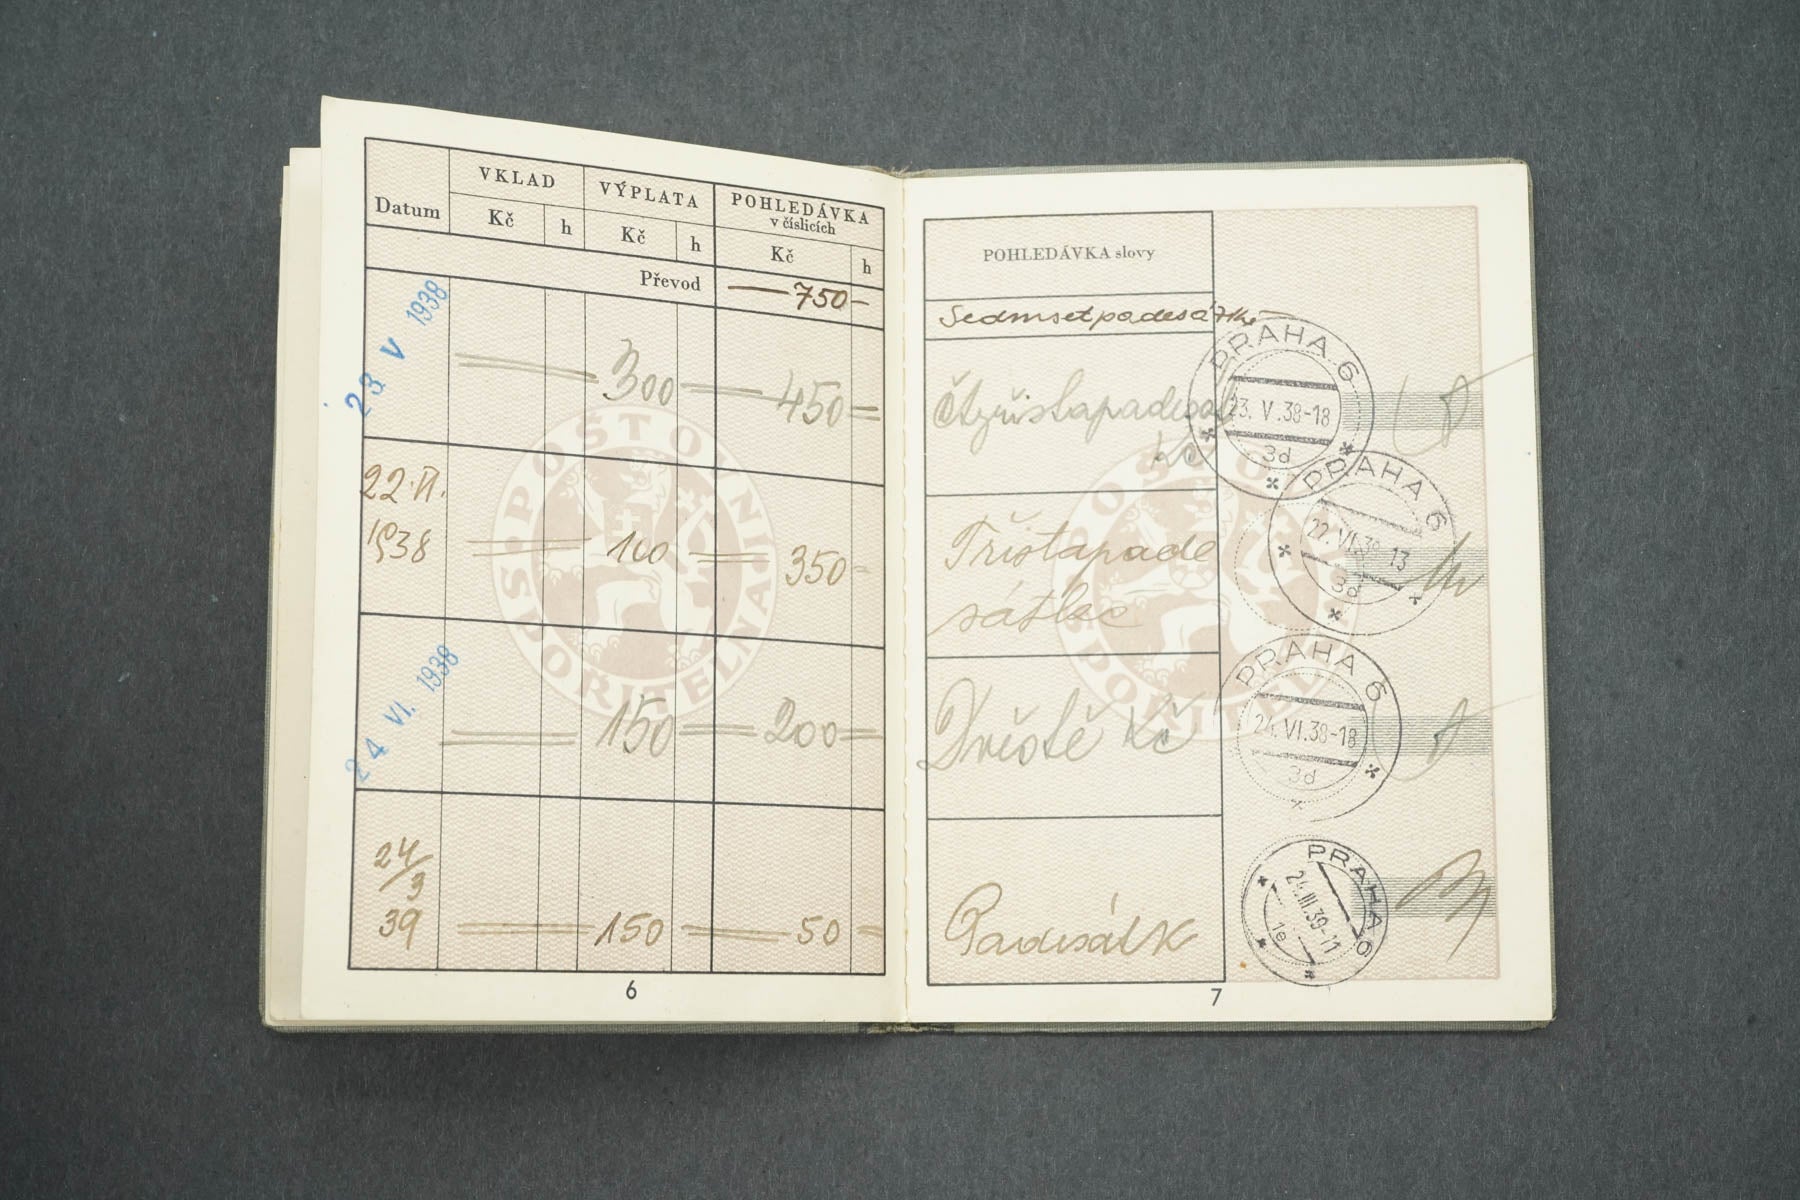 Datum
VKLAD
VÝPLATA
POHLEDÁVKA
v číslicích
Kč h Kč h Kč h
Převod
— 750 —
23 V 1938
300 450
22. VI.
1938
100 350
24 VI. 1938
150 200
24/3
39
150 50
POŠTOVNÍ
SPOŘITELNA
6
POHLEDÁVKA slovy
Sedmsetpadesát Kč
Čtyřistapadesát
Kč
Třistapade
sát Kč
Dvěstě Kč
Padesát K
PRAHA 6
23. V. 38-18
3d
PRAHA 6
22. VI. 38-13
3d
PRAHA 6
24. VI. 38-18
3d
PRAHA 6
24. III. 39-11
1e
7